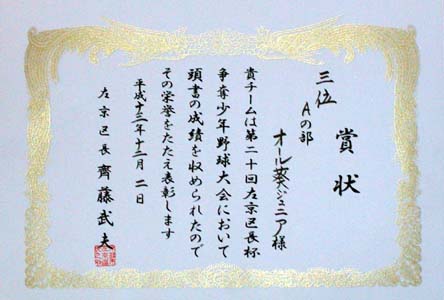 賞状
三位
Aの部
オール葵ジュニア様
貴チームは第二十回左京区長杯
争奪少年野球大会において
頭書の成績を収められたので
その栄誉をたたえ表彰します
平成十三年十二月二日
左京区長 齊藤武夫